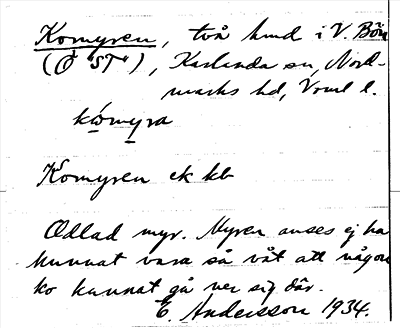 Komyren, två hmd i V. Bön
(Ö ST), Karlanda sn, Nord-
marks hd, Vrml l.
kómyra
Komyren ek kb
Odlad myr. Myren anses ej ha
kunnat vara så våt att någon
ko kunnat gå ner sig där.
E. Andersson 1934.